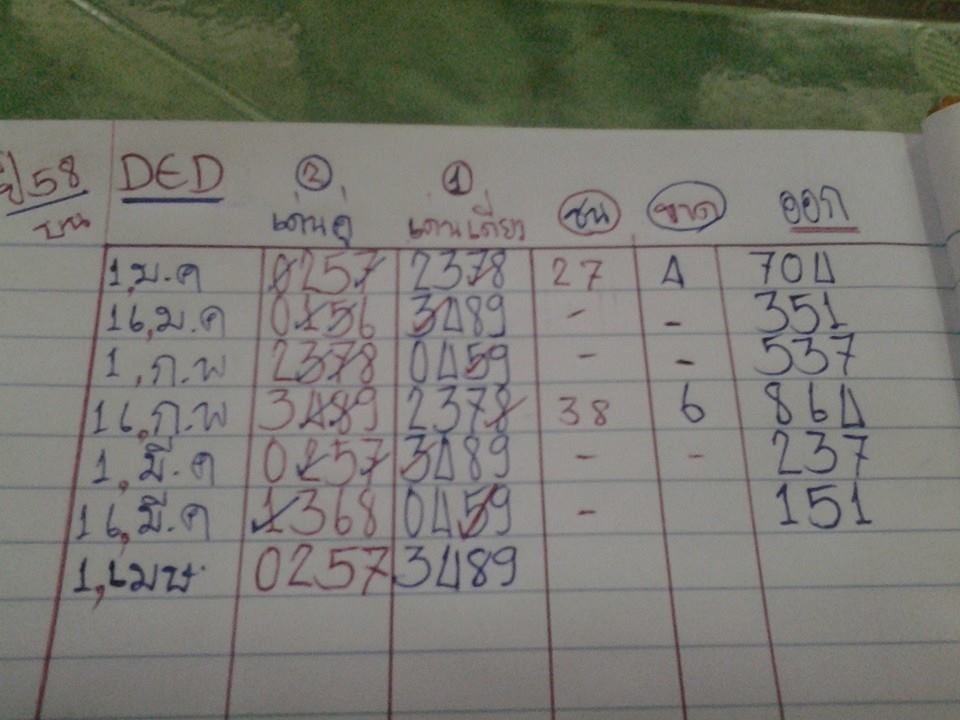 ปี 58 DED ② ①
บน เด่นคู่ เด่นเดี่ยว ชน ขาด ออก
1,ม.ค 0257 2378 27 4 704
16,ม.ค 0156 3489 - - 351
1,ก.พ 2378 0459 - - 537
16,ก.พ 3489 2378 38 6 864
1,มี.ค 0257 3489 - - 237
16,มี.ค 1368 0459 - 151
1,เมษ. 0257 3489